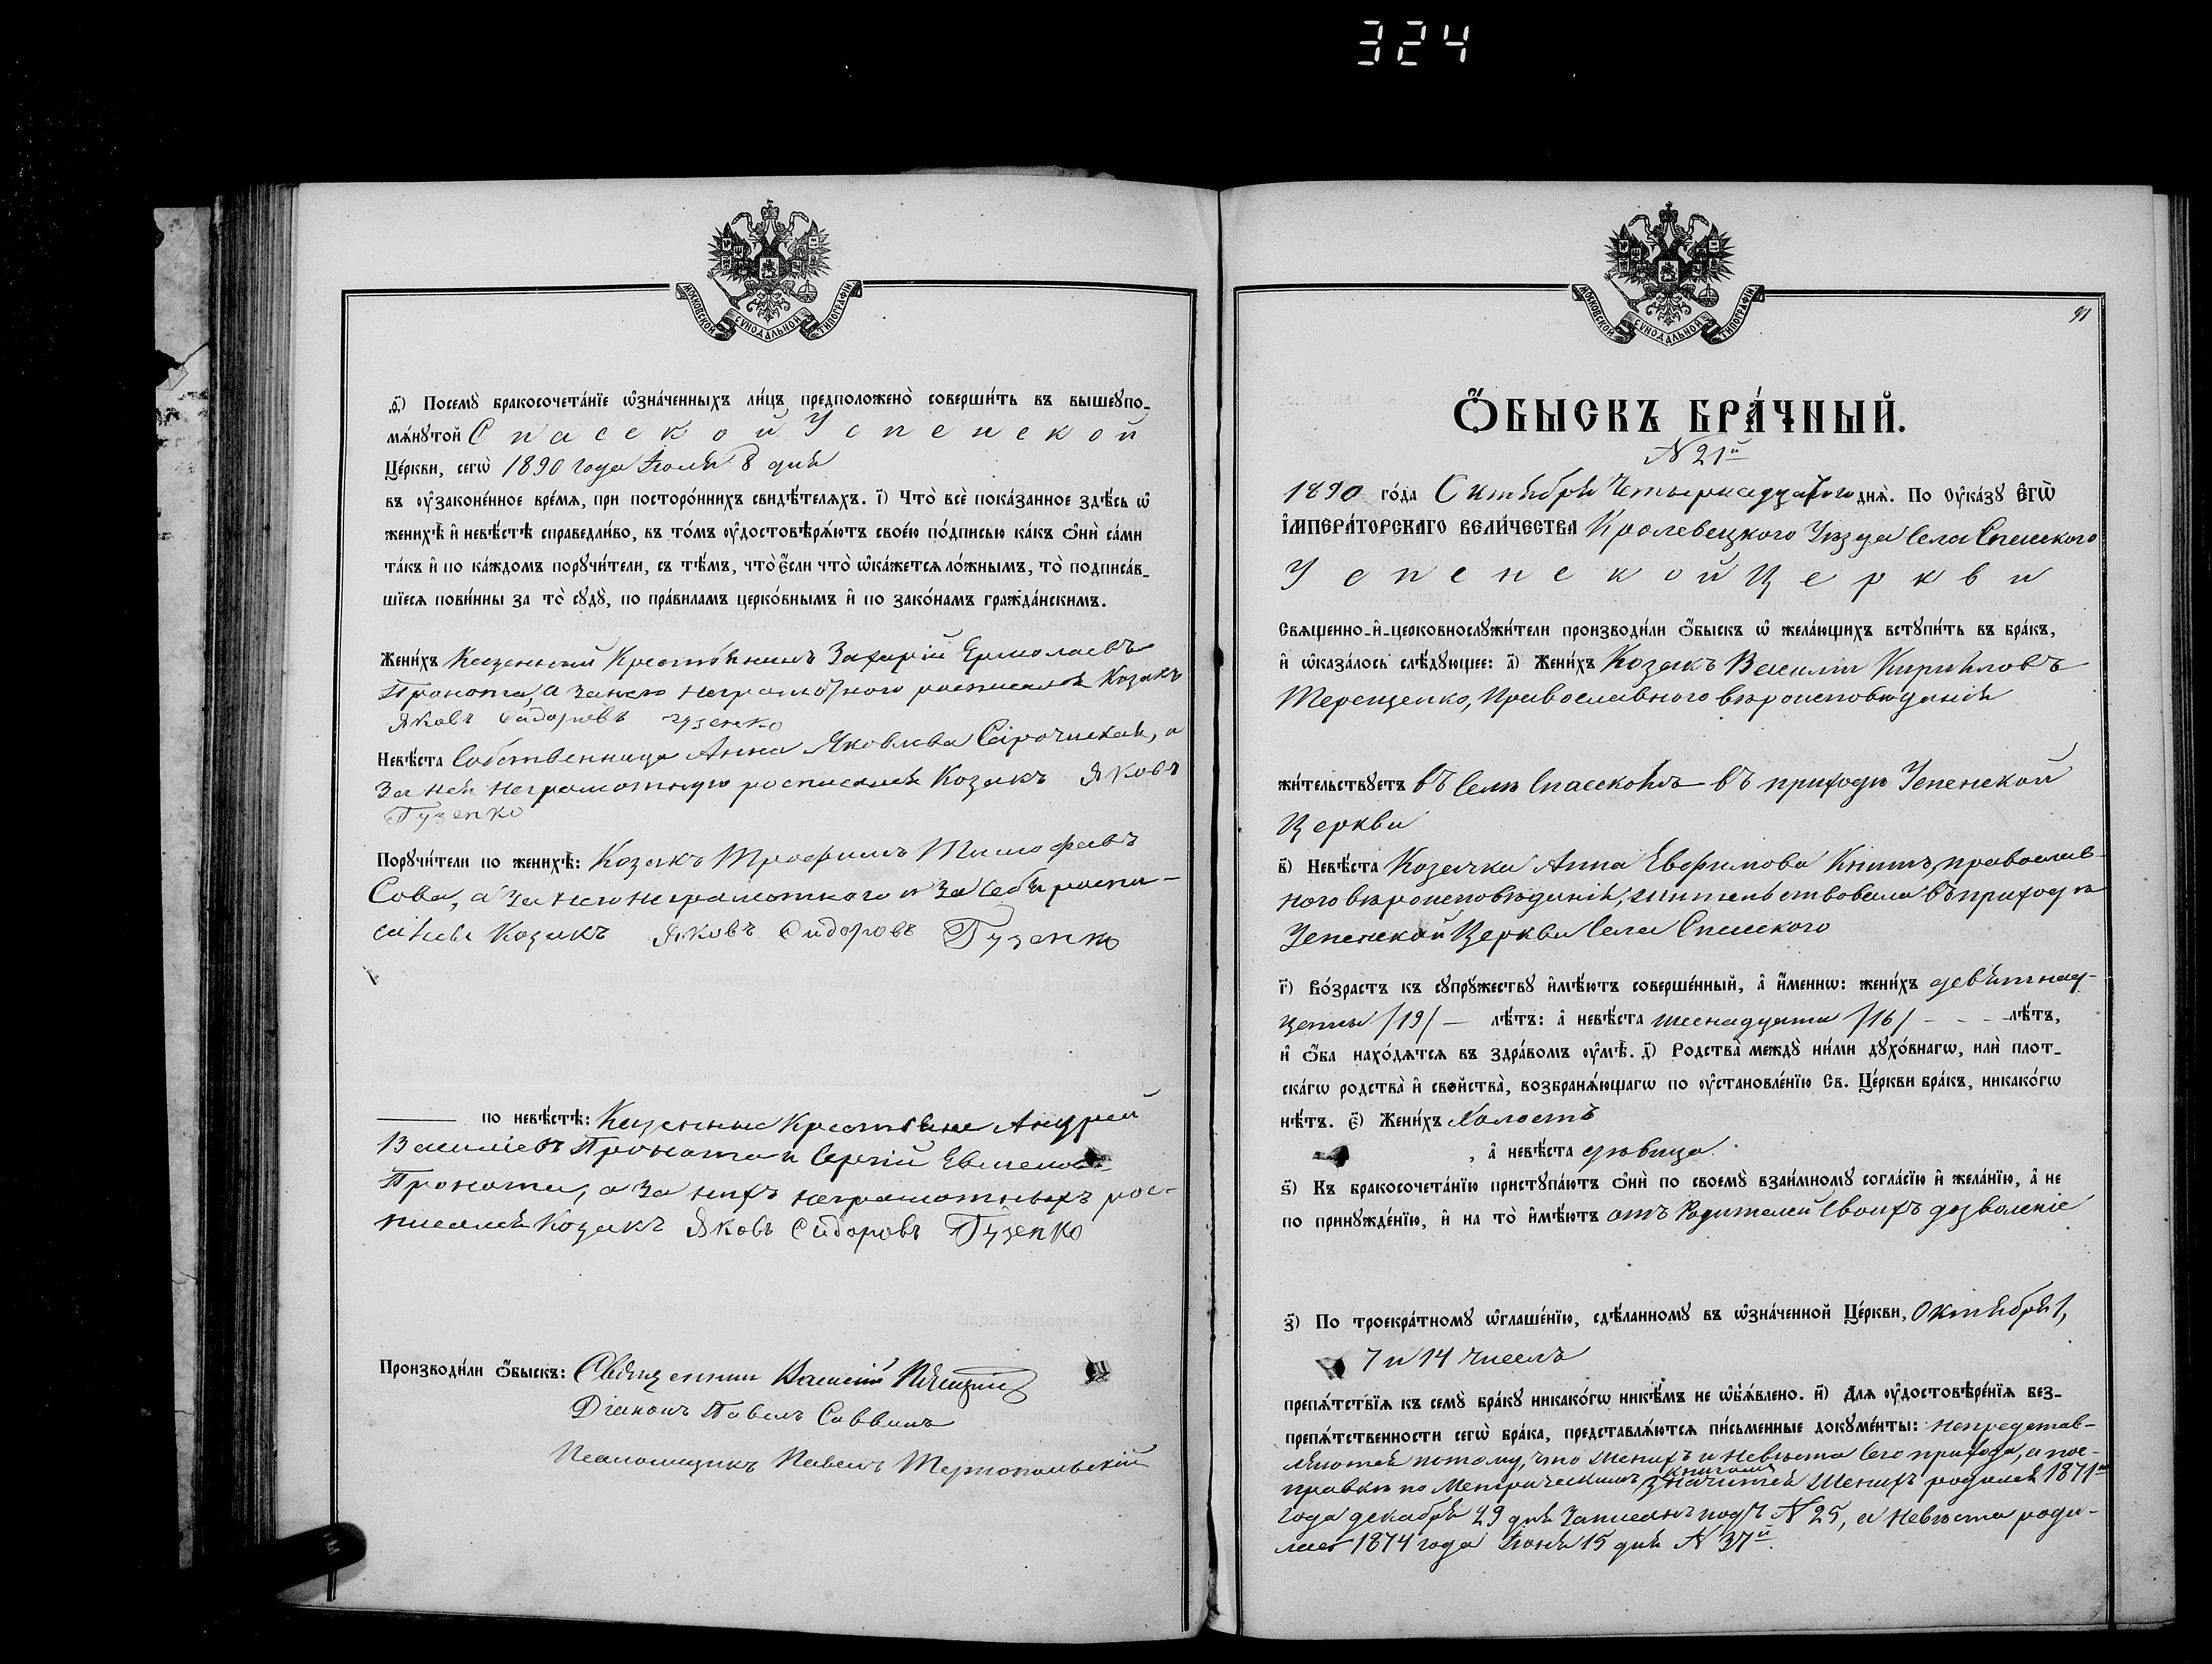 324
МОСКОВСКОЙ СѴНОДАЛЬНОЙ ТИПОГРАФІИ
ѳ҃) Посемꙋ̀ бракосочета́нїе ѡ҆зна́ченныхъ ли́цъ предположено̀ соверши́ть въ вышеꙋпо-
мѧ́нꙋтой Спасской Успенской
Це́ркви, сегѡ̀ 1890 года Іюля 8 дня
въ ᲂу҆законе́нное вре́мѧ, при посторо́ннихъ свидѣ́телѧхъ. і҃) Что̀ всѐ пока́занное здѣ́сь ѡ҆
женихѣ̀ и҆ невѣ́стѣ справедли́во, въ то́мъ ᲂу҆достовѣрѧ́ютъ свое́ю по́дписью ка́къ ѻ҆нѝ са́ми
та́къ и҆ по ка́ждомъ порꙋчи́тели, съ тѣ́мъ, что̀ є҆́сли что̀ ѡ҆ка́жетсѧ ло́жнымъ, то̀ подписа́в-
шїесѧ пови́нны за то̀ сꙋдꙋ̀, по пра́виламъ церко́внымъ и҆ по зако́намъ гражда́нскимъ.
Жени́хъ Казенный Крестьянинъ Захарій Ермолаевъ
Пронота, а за него неграмотного росписался Козакъ
Яковъ Сидоровъ Гузенко
Невѣ́ста Собственница Анна Яковлева Сарочинская, а
за ней неграмотную росписался Козакъ Яковъ
Гузенко
Порꙋчи́тели по женихѣ̀: Козакъ Трофимъ Тимофѣевъ
Сова, а за него неграмотного и за себя роспи-
сался Козакъ Яковъ Сидоровъ Гузенко
по невѣ́стѣ: Казенные Крестьяне Андрей
Василіевъ Пронота и Сергій Евменовъ
Пронота, а за нихъ неграмотныхъ рос-
писался Козакъ Яковъ Сидоровъ Гузенко
Произво́дили ѻ҆́быскъ: Священникъ Василій
Діаконъ Павелъ Саввинъ
Псаломщикъ Павелъ Тернопольскій
МОСКОВСКОЙ СѴНОДАЛЬНОЙ ТИПОГРАФІИ
91
Ѻ҆́БЫСКЪ БРА́ЧНЫЙ.
N 21й
1890 го́да Октября Четырнадцатого днѧ̀. По Оу҆ка́зꙋ Є҆ГѠ̀
І҆МПЕРА́ТОРСКАГО ВЕЛИ́ЧЕСТВА Кролевецкого Уѣзда Села Спасского
Успенской Церкви
Свѧщенно-и҆-церковнослꙋжи́тели производи́ли ѻ҆́быскъ ѡ҆ жела́ющихъ встꙋпи́ть въ бра́къ,
и҆ ѡ҆каза́лось слѣ́дꙋющее: а҃) Жени́хъ Козакъ Василій Кириловъ
Терещенко, Православного вѣроисповѣданія
жи́тельствꙋетъ въ Селѣ Спасскомъ въ приходѣ Успенской
Церкви
в҃) Невѣ́ста Козачка Анна Евфимова Книшъ, православ-
ного вѣроисповѣданія, жительствовала въ приходѣ
Успенской Церкви Села Спасского
г҃) Во́зрастъ къ сꙋпрꙋ́жествꙋ и҆мѣ́ютъ соверше́нный, а҆ и҆́менно: жени́хъ девятнад-
цати /19/ лѣ́тъ: а҆ невѣ́ста шеснадцати /16/ лѣ́тъ,
и҆ ѻ҆́ба нахо́дѧтсѧ въ здра́вомъ ᲂу҆мѣ̀. д҃) Родства̀ междꙋ̀ ни́ми дꙋхо́внагѡ, илѝ плот-
ска́гѡ родства̀ и҆ сво́йства̀, возбранѧ́ющагѡ по ᲂу҆становле́нїю Св. Це́ркви бра́къ, никако́гѡ
нѣ́тъ. є҃) Жени́хъ Холостъ
, а҆ невѣ́ста дѣвица.
ѕ҃) Къ бракосочета́нїю пристꙋпа́ютъ ѻ҆нѝ по своемꙋ̀ взаи́мномꙋ согла́сїю и҆ жела́нїю, а҆ не
по принꙋжде́нїю, и҆ на то̀ и҆мѣ́ютъ отъ Родителей своихъ дозволеніе
з҃) По троекра́тномꙋ ѡ҆глаше́нїю, сдѣ́ланномꙋ въ ѡ҆зна́ченной Це́ркви, Октября 1,
7 и 14 числъ
препѧ́тствїѧ къ семꙋ̀ бра́кꙋ никако́гѡ никѣ́мъ не ѡ҆бъѧ́влено. и҃) Длѧ ᲂу҆достовѣре́нїѧ без-
препѧ́тственности сегѡ̀ бра́ка, представлѧ́ютсѧ пи́сьменные докꙋме́нты: непредстав-
ляются потому, что женихъ и невѣста сего прихода, а по с-
правкѣ по Метрическимъ книгамъ значится женихъ родился 1871го
года декабря 29 дня записанъ подъ N 25, а невѣста роди-
лась 1874 года Іюня 15 дня N 37й.